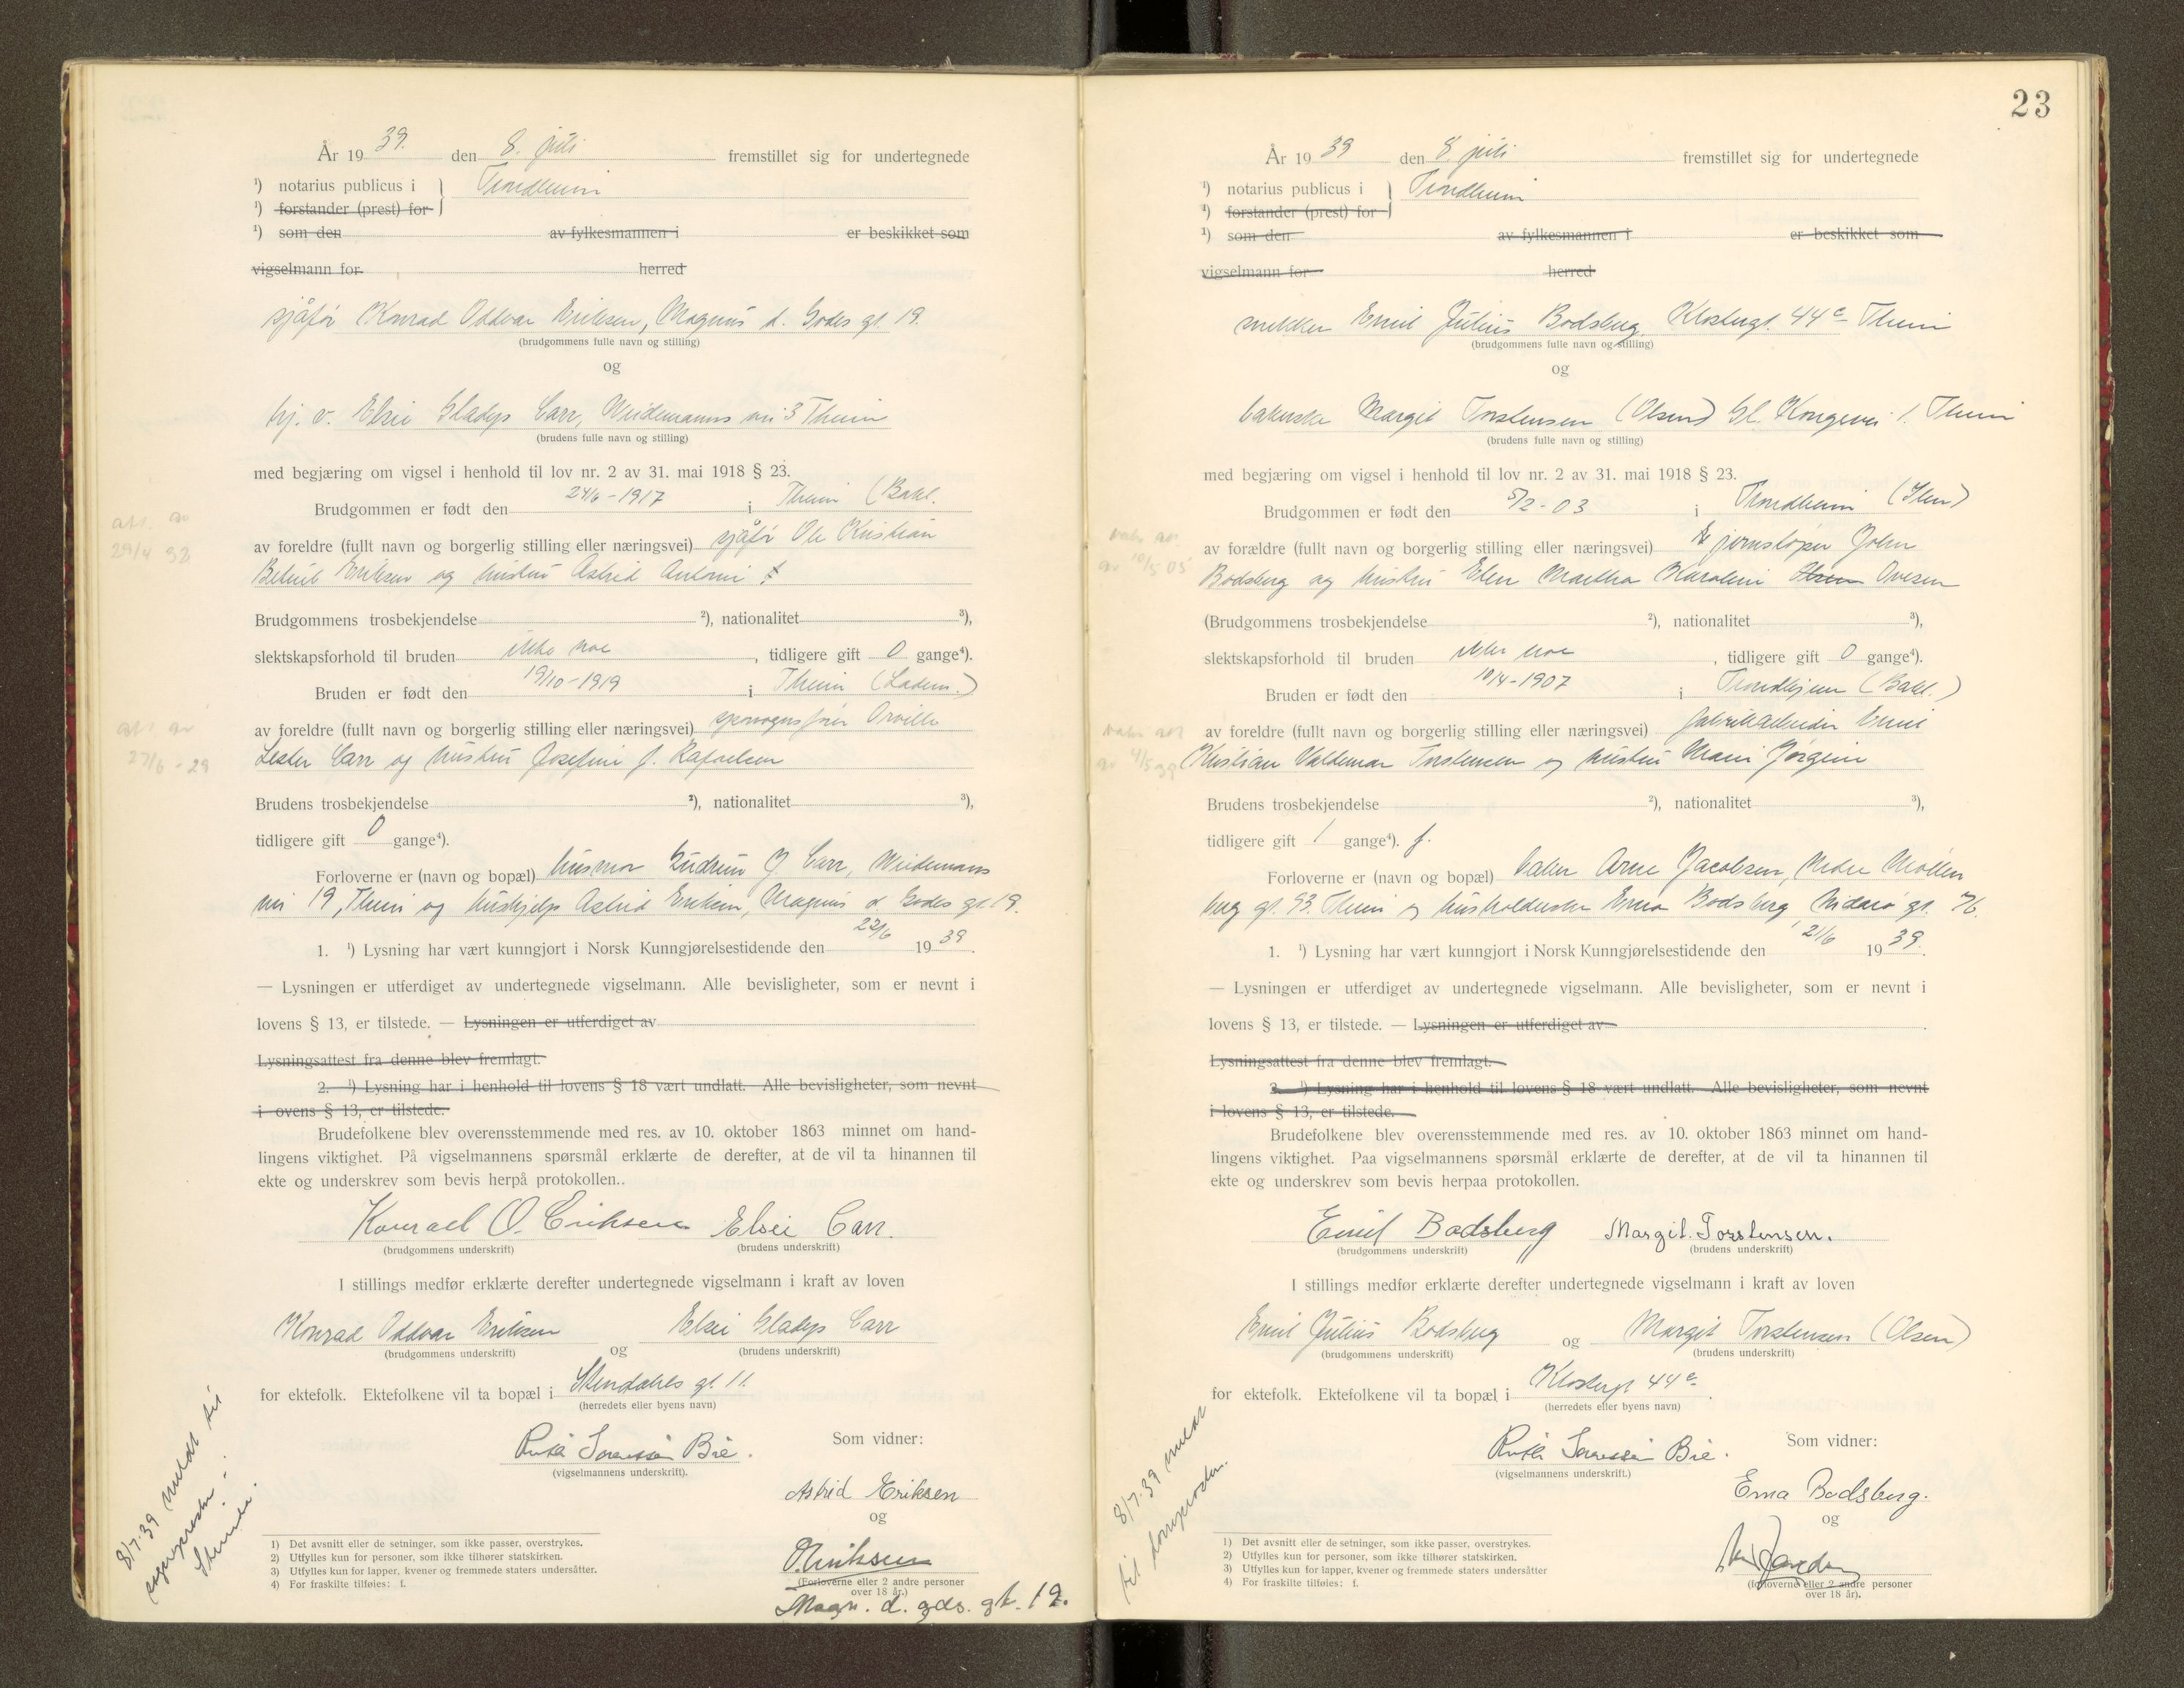 År 1939. den 8. juli fremstillet sig for undertegnede
¹) notarius publicus i } Trondheim
¹) forstander (prest) for
¹) som den av fylkesmannen i er beskikket som
vigselmann for herred
sjåfør Konrad Oddvar Eriksen, Magnus d. Godes gt. 19.
(brudgommens fulle navn og stilling)
og
hj. v. Elsie Gladys Carr, Weidemanns vei 3 Theim
(brudens fulle navn og stilling)
med begjæring om vigsel i henhold til lov nr. 2 av 31. mai 1918 § 23.
Brudgommen er født den 24/6 - 1917 i Theim (Bakl.
av foreldre (fullt navn og borgerlig stilling eller næringsvei) sjåfør Ole Kristian
Eriksen og hustru Astrid Antoni
Brudgommens trosbekjendelse ²), nationalitet ³),
slektskapsforhold til bruden ikke noe, tidligere gift 0 gange⁴).
Bruden er født den 19/10 - 1919 i Theim (Ladem.)
av foreldre (fullt navn og borgerlig stilling eller næringsvei) sporvognsfører Orville
Lester Carr og hustru Josefine f. Rafaelsen
Brudens trosbekjendelse ²), nationalitet ³),
tidligere gift 0 gange⁴).
Forloverne er (navn og bopæl) husmor Gudrun J. Carr, Weidemanns
vei 19, Theim og hushjelp Astrid Eriksen, Magnus d Godes gt. 19.
1. ¹) Lysning har vært kunngjort i Norsk Kunngjørelsestidende den 22/6 1939.
— Lysningen er utferdiget av undertegnede vigselmann. Alle bevisligheter, som er nevnt i
lovens § 13, er tilstede. — Lysningen er utferdiget av
Lysningsattest fra denne blev fremlagt.
2. ¹) Lysning har i henhold til lovens § 18 vært undlatt. Alle bevisligheter, som nevnt
i ovens § 13, er tilstede.
Brudefolkene blev overensstemmende med res. av 10. oktober 1863 minnet om hand-
lingens viktighet. På vigselmannens spørsmål erklærte de derefter, at de vil ta hinannen til
ekte og underskrev som bevis herpå protokollen..
Konrad O. Eriksen Elsie Carr.
(brudgommens underskrift) (brudens underskrift)
I stillings medfør erklærte derefter undertegnede vigselmann i kraft av loven
Konrad Oddvar Eriksen og Elsie Gladys Carr
(brudgommens underskrift) (brudens underskrift)
for ektefolk. Ektefolkene vil ta bopæl i Stendahls gt. 11.
(herredets eller byens navn)
Som vidner:
Bie.
(vigselmannens underskrift).
Astrid Eriksen
og
O. Eriksen
(Forloverne eller 2 andre personer
over 18 år.)
Magn. d. gds. gt. 19.
1) Det avsnitt eller de setninger, som ikke passer, overstrykes.
2) Utfylles kun for personer, som ikke tilhører statskirken.
3) Utfylles kun for lapper, kvener og fremmede staters undersåtter.
4) For fraskilte tilføies: f.
8/7.39 meldt til
sognepresten
27/6 - 29
23
År 1939 den 8. juli fremstillet sig for undertegnede
¹) notarius publicus i } Trondheim
¹) forstander (prest) for
¹) som den av fylkesmannen i er beskikket som
vigselmann for herred
snekker Emil Julius Bodsberg, Klostergt. 44 c Theim
(brudgommens fulle navn og stilling)
og
bakerske Margit Torstensen (Olsen) Gl. Kongevei 1. Theim
(brudens fulle navn og stilling)
med begjæring om vigsel i henhold til lov nr. 2 av 31. mai 1918 § 23.
Brudgommen er født den 5/2 - 03 i Trondheim (Ilen)
av forældre (fullt navn og borgerlig stilling eller næringsvei) jernstøper John
Bodsberg og hustru Elen Martha Karoline Olsen Ovesen
(Brudgommens trosbekjendelse ²), nationalitet ³),
slektskapsforhold til bruden ikke noe, tidligere gift 0 gange⁴).
Bruden er født den 10/4 - 1907 i Trondhjem (Bakl.)
av foreldre (fullt navn og borgerlig stilling eller næringsvei) fabrikkarbeider Emil
Kristian Valdemar Torstensen og hustru Marie Jørgine
Brudens trosbekjendelse ²), nationalitet ³),
tidligere gift 1 gange⁴). f.
Forloverne er (navn og bopæl) baker Arne Jacobsen, Nedre Møllen
berg gt. 93. Theim og husholderske Erna Bodsberg, Nidarø gt. 76.
1. ¹) Lysning har vært kunngjort i Norsk Kunngjørelsestidende den 21/6 1939.
— Lysningen er utferdiget av undertegnede vigselmann. Alle bevisligheter, som er nevnt i
lovens § 13, er tilstede. — Lysningen er utferdiget av
Lysningsattest fra denne blev fremlagt.
2. ¹) Lysning har i henhold til lovens § 18 vært undlatt. Alle bevisligheter, som nevnt
i lovens § 13, er tilstede.
Brudefolkene blev overensstemmende med res. av 10. oktober 1863 minnet om hand-
lingens viktighet. Paa vigselmannens spørsmål erklærte de derefter, at de vil ta hinannen til
ekte og underskrev som bevis herpaa protokollen.
Emil Bodsberg Margit. Torstensen.
(brudgommens underskrift) (brudens underskrift)
I stillings medfør erklærte derefter undertegnede vigselmann i kraft av loven
Emil Julius Bodsberg og Margit Torstensen (Olsen)
(brudgommens underskrift) (brudens underskrift)
for ektefolk. Ektefolkene vil ta bopæl i Klostergt 44 c.
(herredets eller byens navn)
Som vidner:
Bie.
(vigselmannens underskrift.)
Erna Bodsberg.
og
(forloverne eller 2 andre personer
over 18 år).
1) Det avsnitt eller de setninger, som ikke passer, overstrykes.
2) Utfylles kun for personer, som ikke tilhører statskirken.
3) Utfylles kun for lapper, kvener og fremmede staters undersåtter
4) For fraskilte tilføies: f.
8/7.39 meldt
til domprosten.